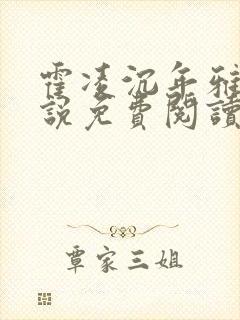 霍凌沉年雅
說免費閱讀
覃家三姐